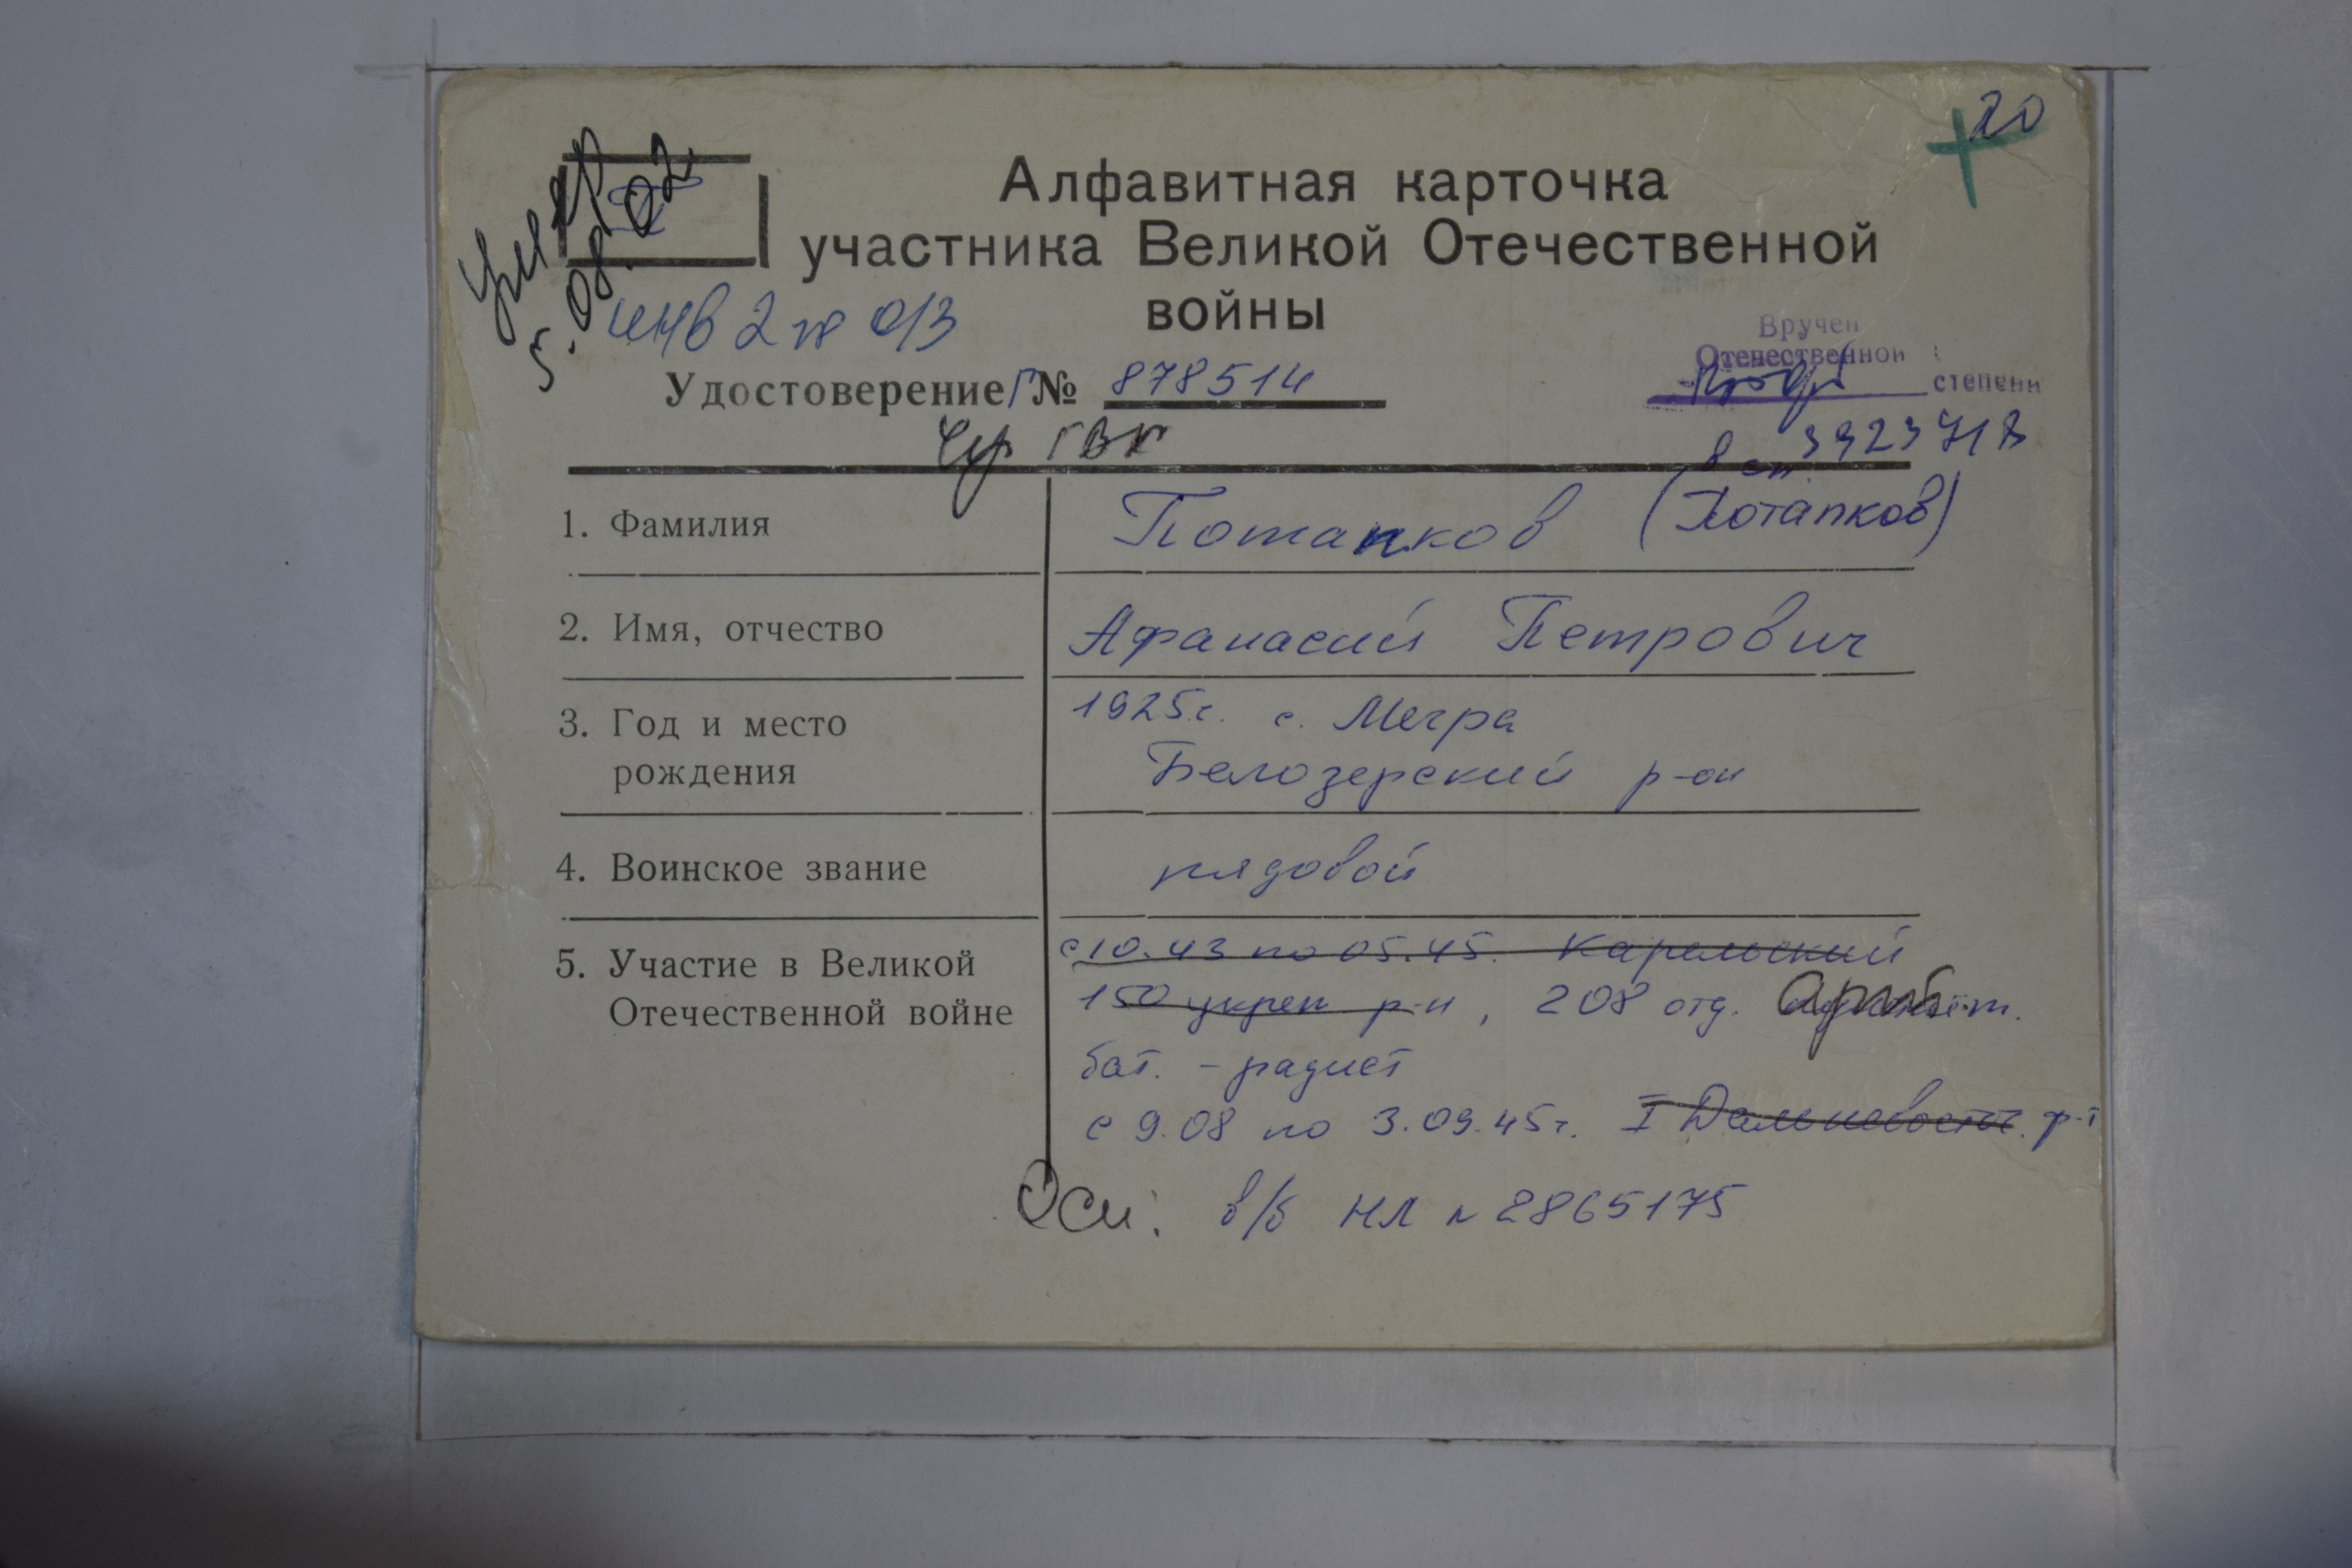 20
Алфавитная карточка
участника Великой Отечественной
войны
Умер
5.08.02
инв 2 гр 013
Вручен
Отечественной
степени
Удостоверение Г № 878514
Чер ГВК
3923718
1. Фамилия Потапков (Потапков)
2. Имя, отчество Афанасий Петрович
3. Год и место 1925г. с. Мегра
рождения Белозерский р-он
4. Воинское звание рядовой
5. Участие в Великой с 10.43 по 05.45. Карельский
Отечественной войне 150 укреп р-н, 208 отд.
бат. - радист
с 9.08 по 3.09.45г. I Дальневосточ. р-т
Осн: в/б НЛ № 2865175